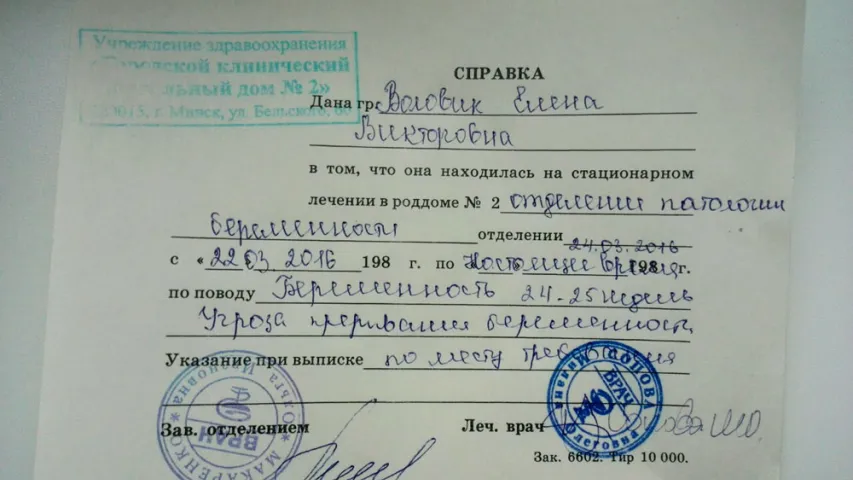 Учреждение здравоохранения
клинический
дом № 2»
г. Минск, ул. Бельского, 60
СПРАВКА
Дана гр. Воловик Елена
Викторовна
в том, что она находилась на стационарном
лечении в роддоме № 2 отделении патологии
беременности отделении 24.03.2016
с «22 03. 2016 198 г. по настоящее время 198 г.
по поводу Беременность 24-25 недель
Угроза прерывания беременности
Указание при выписке по месту требования
Зав. отделением Леч. врач
МАКАРЕНКО Ольга Ивановна
ВРАЧ
ПОПОВА
Олеговна
ВРАЧ
Зак. 6602. Тир 10 000.